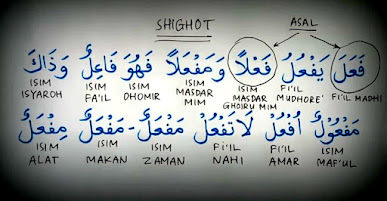 SHIGHOT ASAL
فَعَلَ يَفْعُلُ فَعْلًا وَمَفْعَلًا فَهُوَ فَاعِلٌ وَذَاكَ
FI'IL MADHI FI'IL MUDHORE' ISIM MASDAR GHOIRU MIM ISIM MASDAR MIM ISIM DHOMIR ISIM FA'IL ISIM ISYAROH
مَفْعُوْلٌ اُفْعُلْ لَا تَفْعُلْ مَفْعَلٌ - مَفْعَلٌ مِفْعَلٌ
ISIM MAF'UL FI'IL AMAR FI'IL NAHI ISIM ZAMAN ISIM MAKAN ISIM ALAT